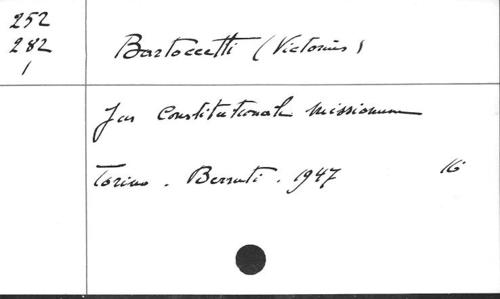 252
282
1
Bartoccetti (Victorius)
Jus Constitutionale Missionum
Torino. Berruti. 1947 16